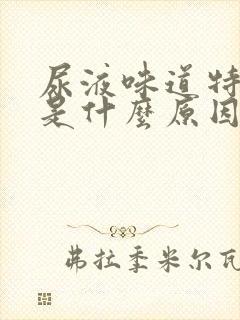 尿液味道特
是什麼原因
弗拉季米尔瓦